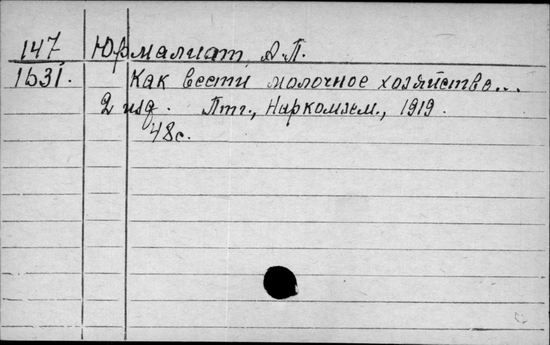 147 Юрмалиат, А.П.
1531. Как вести молочное хозяйство...
2 изд. Птг., Наркомзем., 1919.
48с.